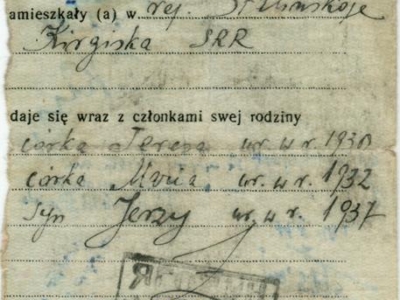 amieszkały (a) w rej. Stalinskoje
Kirgiska SRR
daje się wraz z członkami swej rodziny
córka Teresa ur. w r. 1930
córka Maria ur. w r. 1932
syn Jerzy ur. w r. 1937